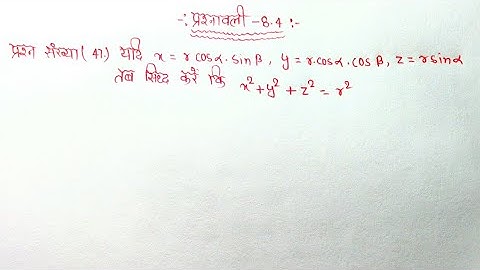 -: प्रश्नावली - 8.4 :-
प्रश्न संख्या (47.) यदि x = r cosα . sinβ , y = r.cosα . cosβ , z = r sinα
तब सिध्द करें कि x²+y²+z² = r²